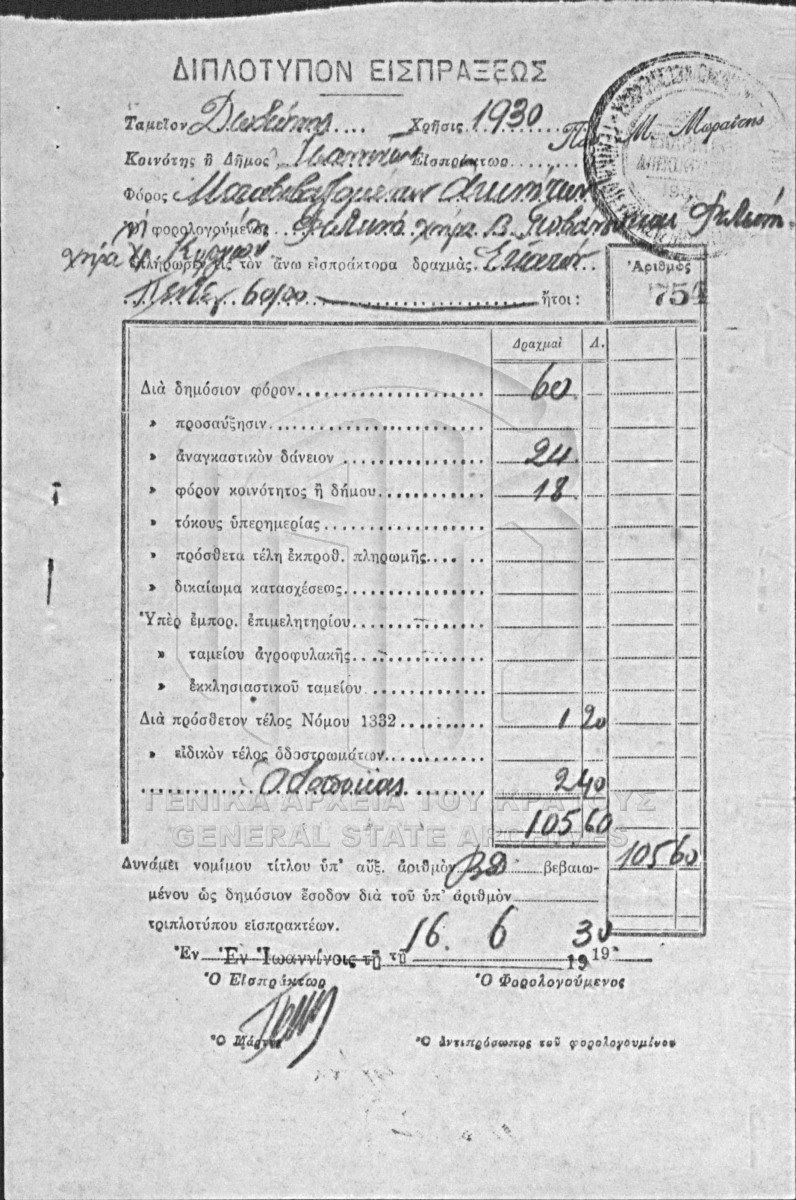 ΔΙΠΛΟΤΥΠΟΝ ΕΙΣΠΡΑΞΕΩΣ
Ταμεῖον Δωδώνης Χρῆσις 1930
Κοινότης ἢ Δῆμος Ἰωαννίνων Εἰσπράκτωρ Μ. Μωραΐτης
Φόρος Μεταβιβαζομένων Ἀκινήτων
φορολογούμενος χήρα Β.
χήρα
ἐπλήρωσεν εἰς τὸν ἄνω εἰσπράκτορα δραχμὰς Ἑκατόν
Πέντε 60/00 ἤτοι:
Ἀριθμὸς
754
Δραχμαὶ Λ.
Διὰ δημόσιον φόρον 60
» προσαύξησιν
» ἀναγκαστικὸν δάνειον 24
» φόρον κοινότητος ἢ δήμου 18
» τόκους ὑπερημερίας
» πρόσθετα τέλη ἐκπροθ. πληρωμῆς
» δικαίωμα κατασχέσεως
Ὑπὲρ ἐμπορ. ἐπιμελητηρίου
» ταμείου ἀγροφυλακῆς
» ἐκκλησιαστικοῦ ταμείου
Διὰ πρόσθετον τέλος Νόμου 1332 1 20
» εἰδικὸν τέλος ὁδοστρωμάτων
2 40
105 60
105 60
ΓΕΝΙΚΑ ΑΡΧΕΙΑ ΤΟΥ ΚΡΑΤΟΥΣ
GENERAL STATE ARCHIVES
Δυνάμει νομίμου τίτλου ὑπ' αὔξ. ἀριθμὸν βεβαιω-
μένου ὡς δημόσιον ἔσοδον διὰ τοῦ ὑπ' ἀριθμὸν
τριπλοτύπου εἰσπρακτέων.
Ἐν Ἐν Ἰωαννίνοις τῇ τῇ 16. 6 30 19 19
Ὁ Εἰσπράκτωρ Ὁ Φορολογούμενος
Ὁ Μάρτυς Ὁ Ἀντιπρόσωπος τοῦ φορολογουμένου